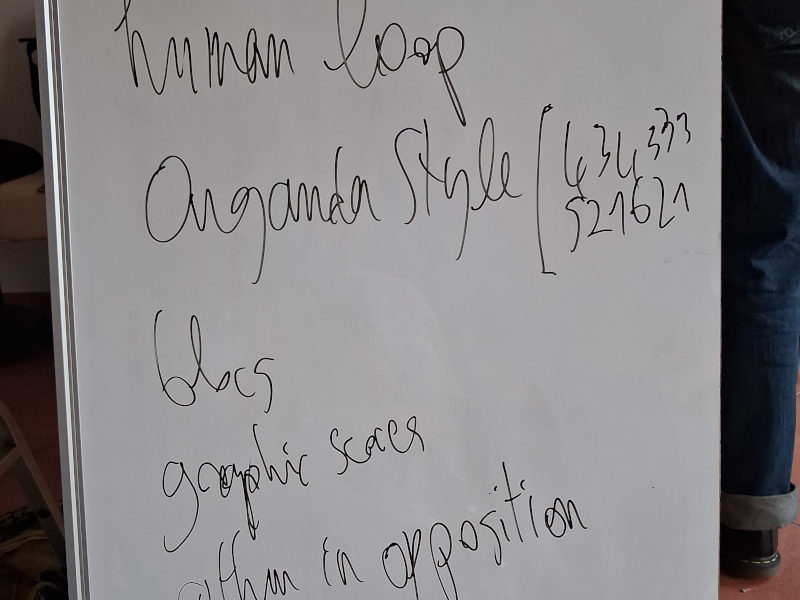 human loop
Ouganda Style [ 434333
521621
blocs
graphic scores
in opposition